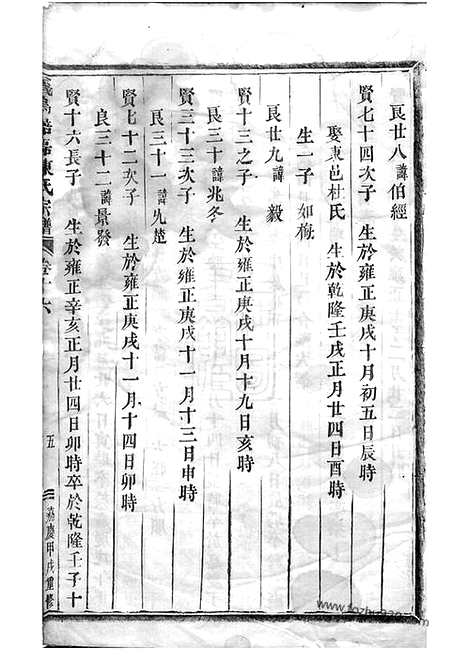 良廿八諱伯經
賢七十四次子 生於雍正庚戌十月初五日辰時
娶東邑杜氏 生於乾隆壬戌正月廿四日酉時
生一子 如梅
良廿九諱毅
賢十三之子 生於雍正庚戌十月十九日亥時
良三十諱兆冬
賢三十三次子 生於雍正庚戌十一月十三日申時
良三十一諱光楚
賢七十二次子 生於雍正庚戌十一月十四日卯時
良三十二諱景發
賢十六長子 生於雍正辛亥正月廿四日卯時卒於乾隆壬子十
陳氏宗譜
卷十六
五
嘉慶甲戌重修